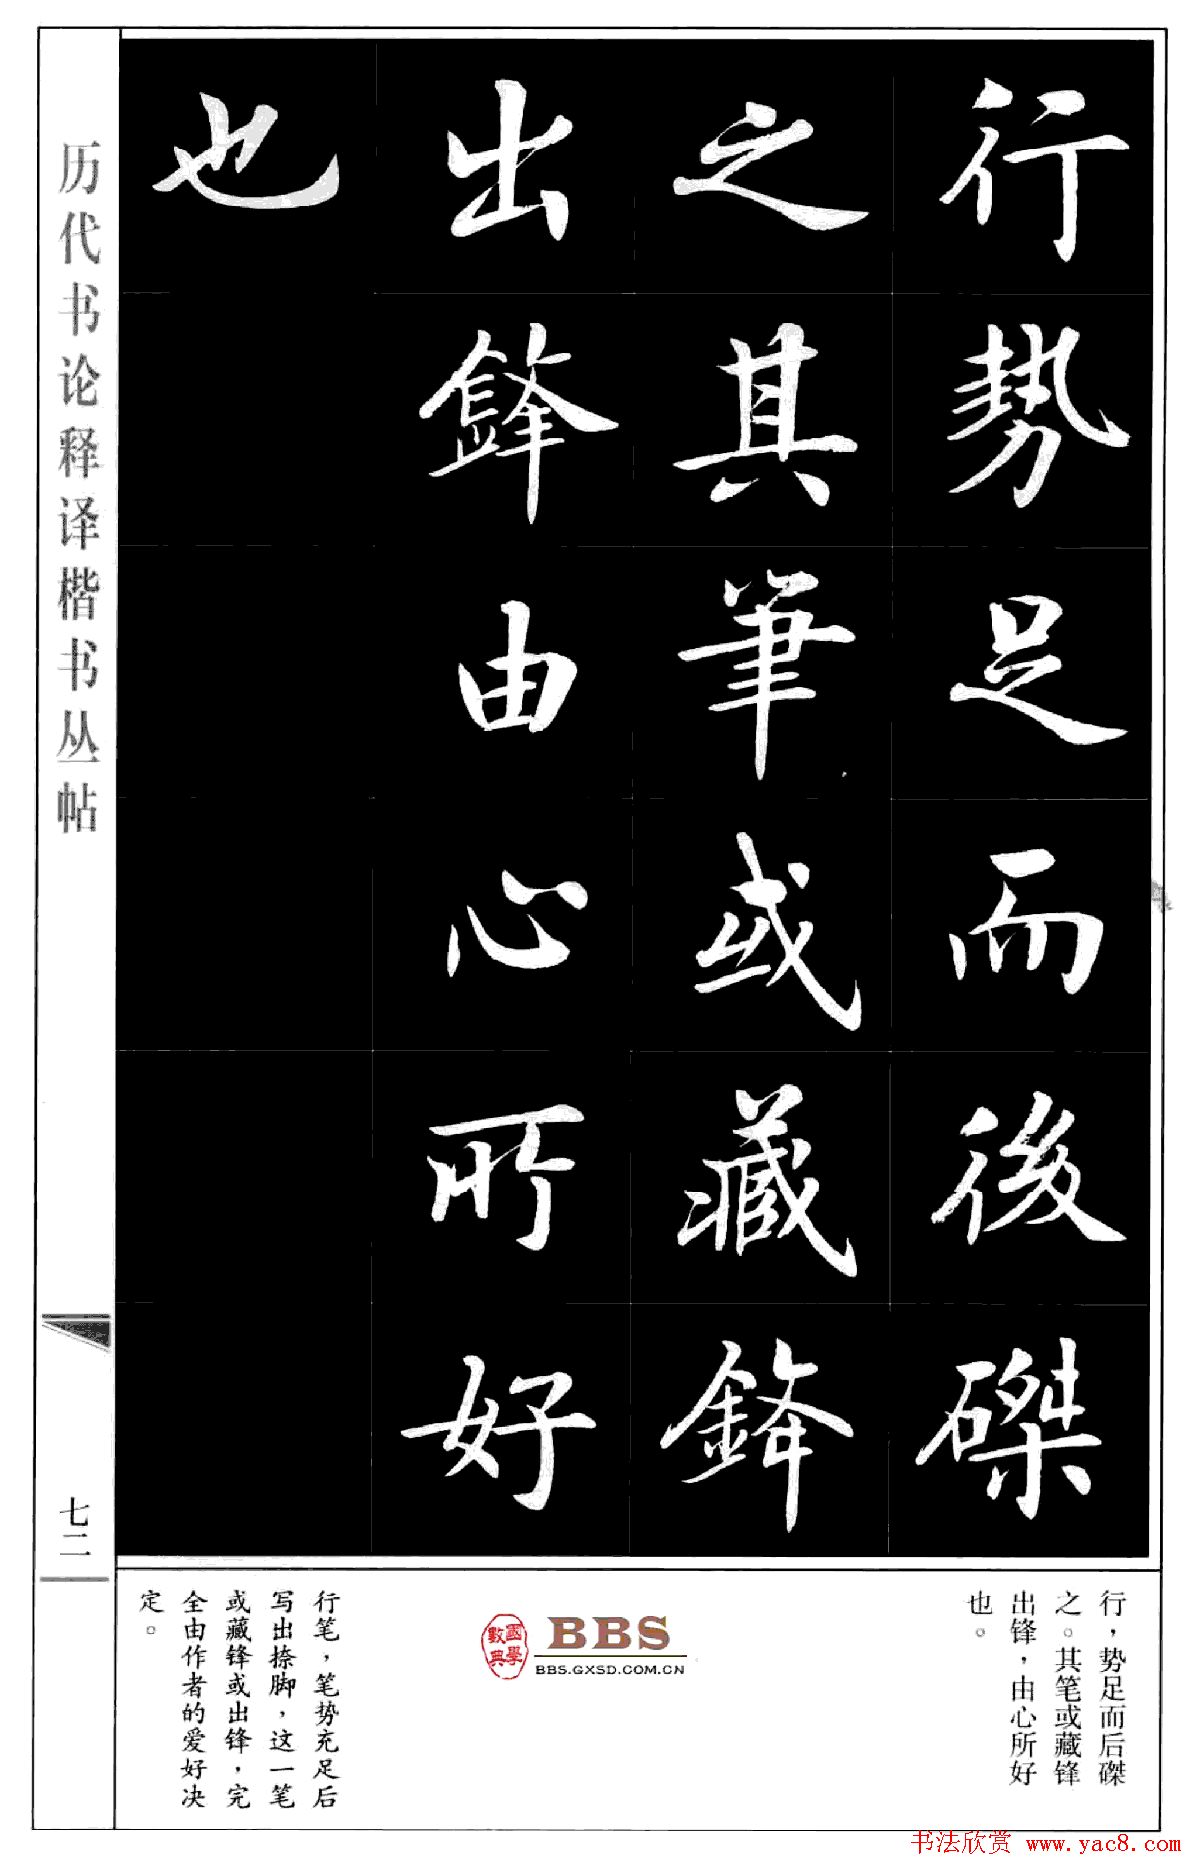 行勢足而後磔
之其筆或藏鋒
出鋒由心所好
也
历代书论释译楷书丛帖
七二
行，势足而后磔
之。其笔或藏锋
出锋，由心所好
也。
國學
數典
BBS
BBS.GXSD.COM.CN
行笔，笔势充足后
写出捺脚，这一笔
或藏锋或出锋，完
全由作者的爱好决
定。
书法欣赏 www.yac8.com